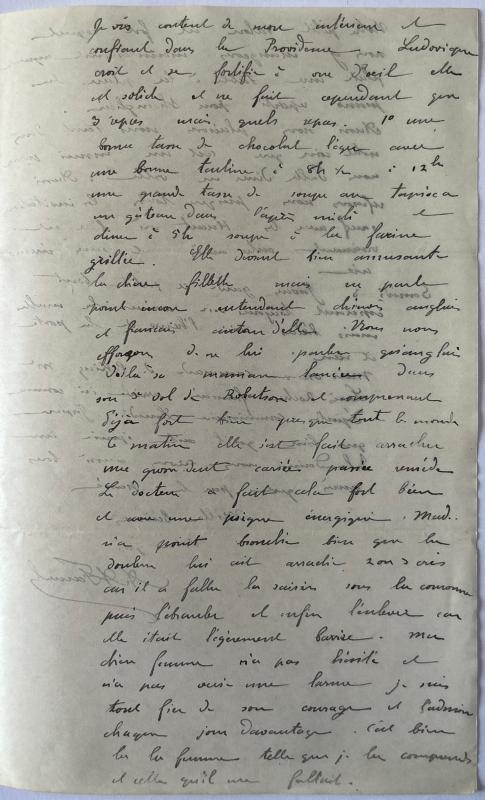 Je vis content de mon intérieur et
confiant dans la Providence. Ludovique
croit et se fortifie à vue d'oeil elle
est solide et ne fait cependant que
3 repas mais quels repas. 1° une
bonne tasse de chocolat léger avec
une bonne tartine à 8h ½ à 12h
une grande tasse de soupe au tapioca
un gâteau dans l'après midi et
dîner à 5h soupe à la farine
grillée. Elle devient bien amusante
la chère fillette mais ne parle
point encore entendant chinois anglais
et français autour d'elle. Nous nous
efforçons de ne lui parler qu'anglais
Voilà sa maman lancée dans
son et comprenant
déjà fort bien presque tout le monde
Ce matin elle s'est fait arracher
une grosse dent cariée passée remède
Le docteur a fait cela fort bien
et avec une poigne énergique. Mad.
n'a point bronché bien que la
douleur lui ait arraché 2 ou 3 cris
car il a fallu la saisir sous la couronne
puis l'ébranler et enfin l'enlever car
elle était légèrement barrée. Ma
chère femme n'a pas hésité et
n'a pas versé une larme je suis
tout fier de son courage et l'admire
chaque jour davantage. C'est bien
là la femme telle que je la comprends
et celle qu'il me fallait.